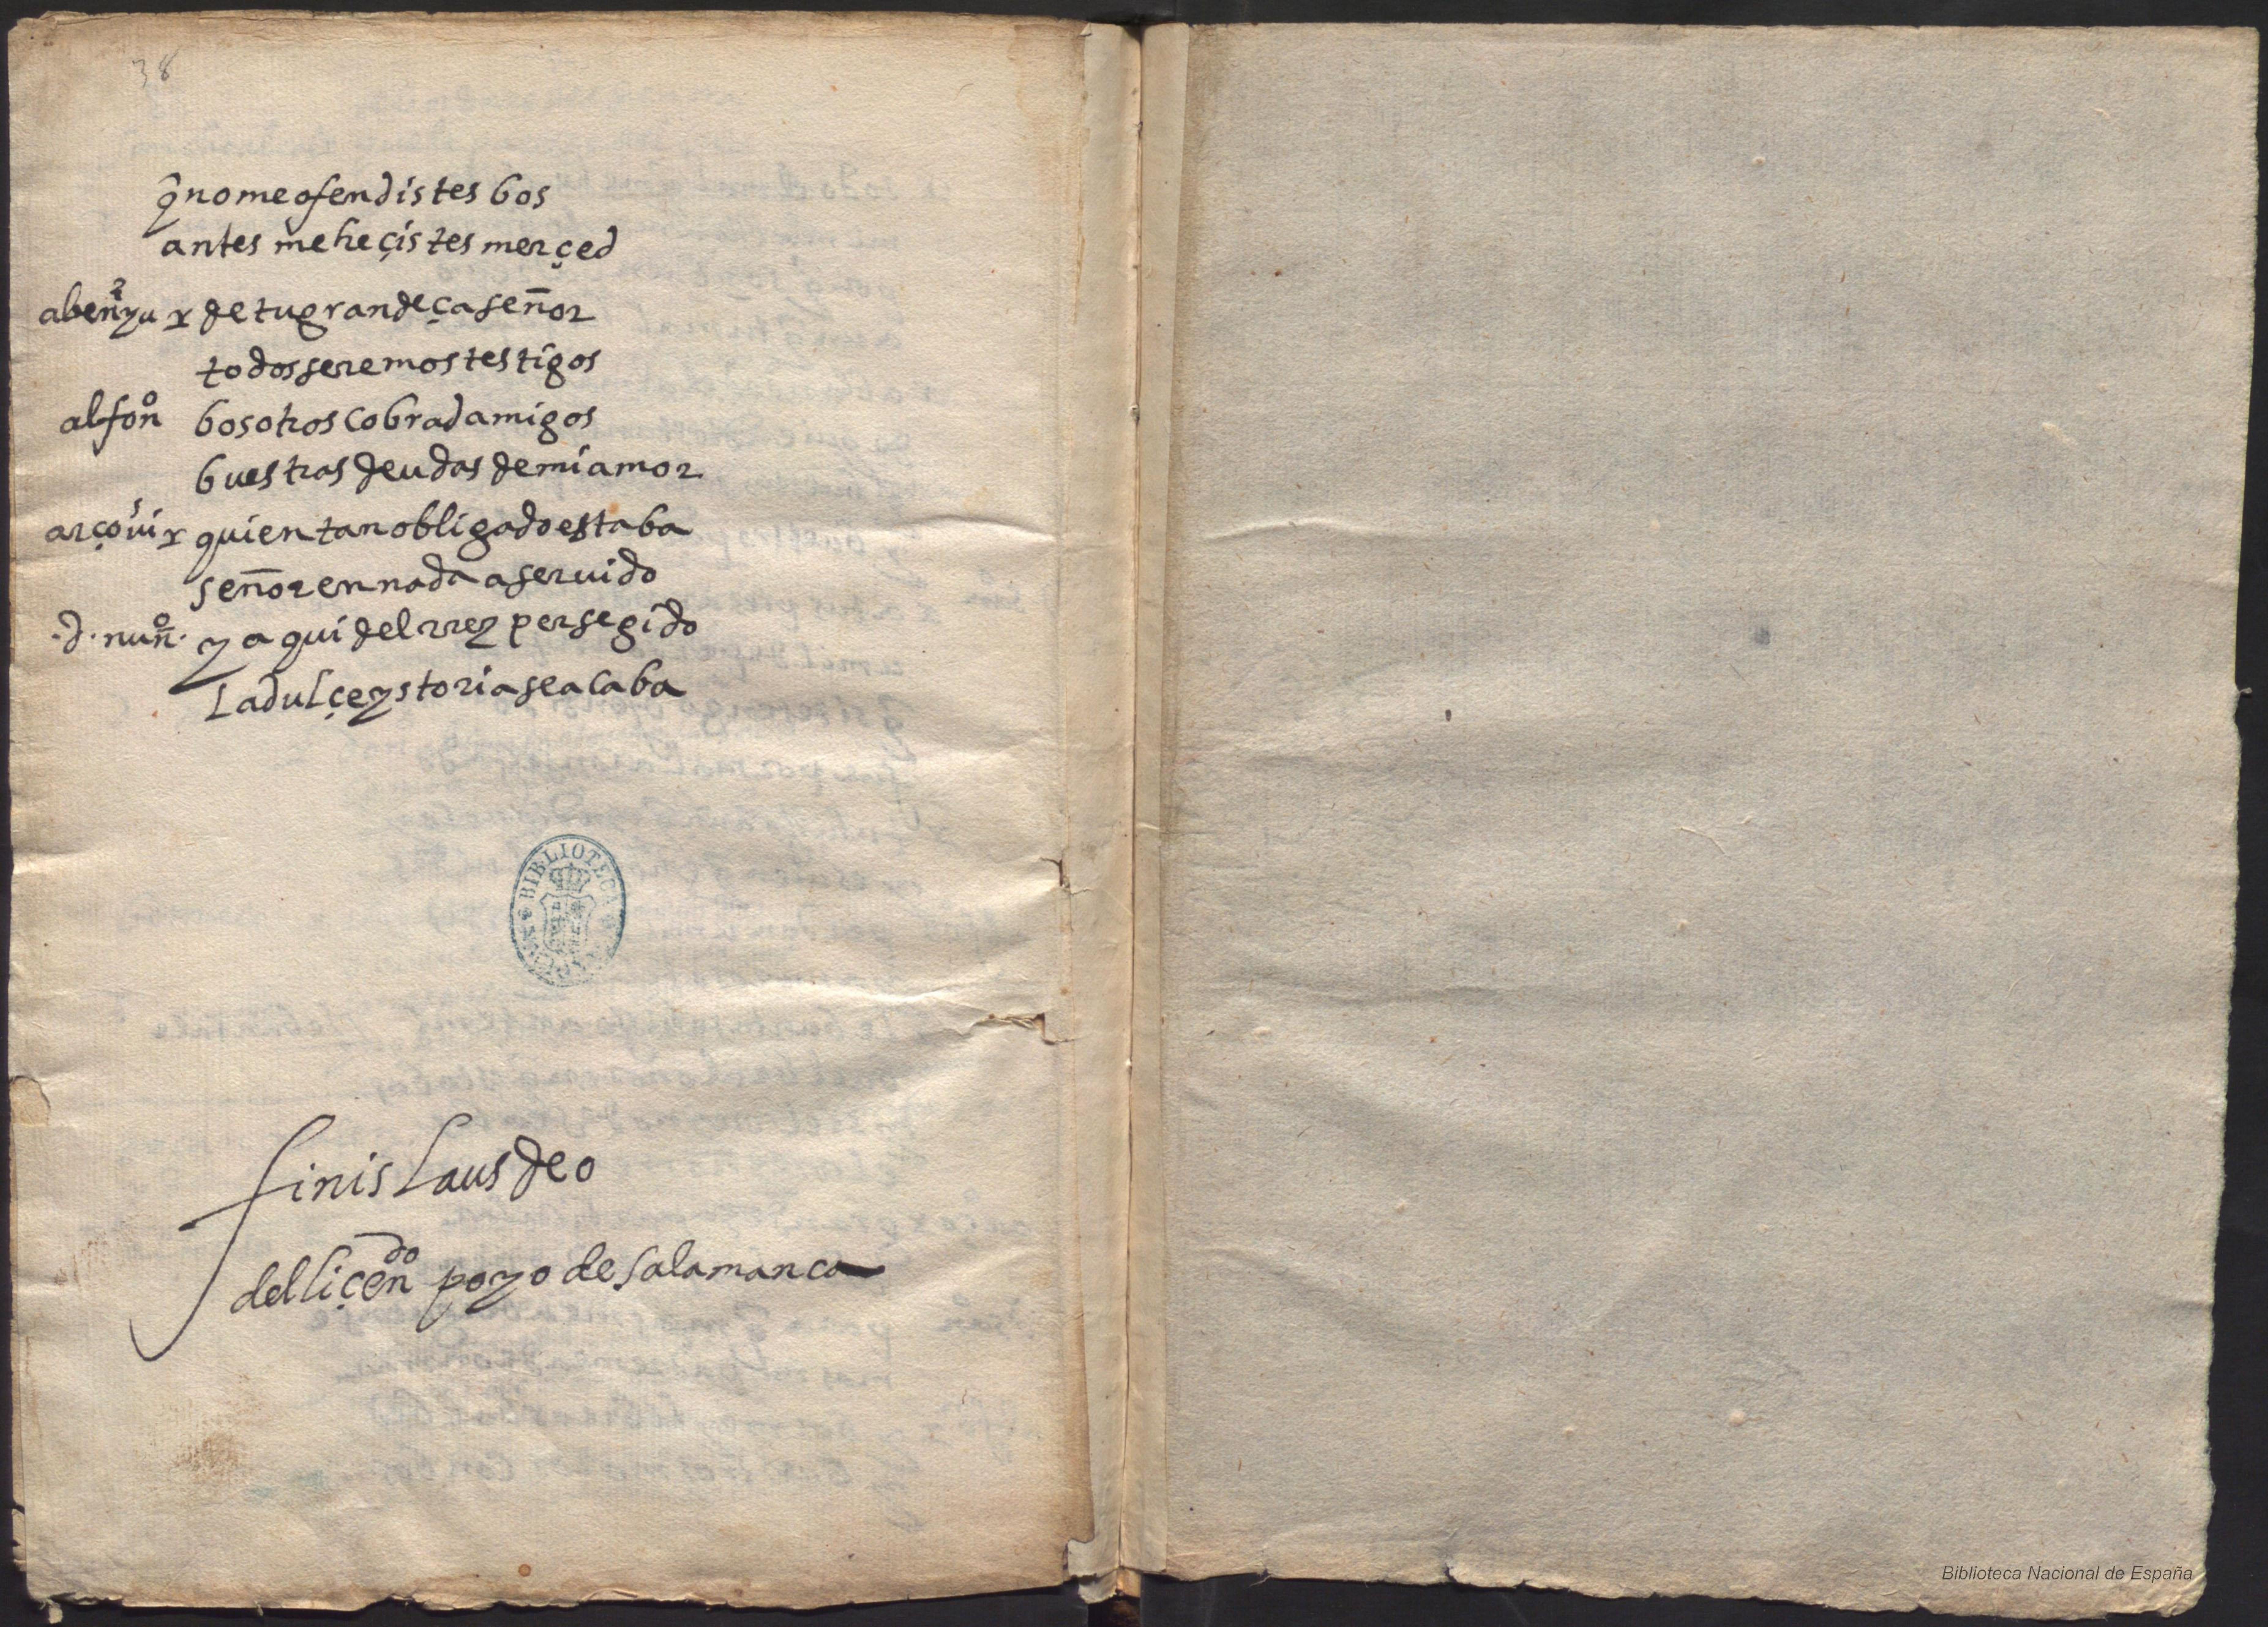 38
q̃ no me ofendistes bos
antes me heçistes merçed
abenyu x de tu grandeça señor
todos seremos testigos
alfon̊ bosotros cobrad amigos
buestras deudas de mi amor
x quien tan obligado estaba
señor en nada a seruido
.d. nun̊. y aqui del rrey persegido
la dulçe ystoria se acaba
BIBLIOTECA
finis laus deo
del liçen^do poyo de salamanca
Biblioteca Nacional de España